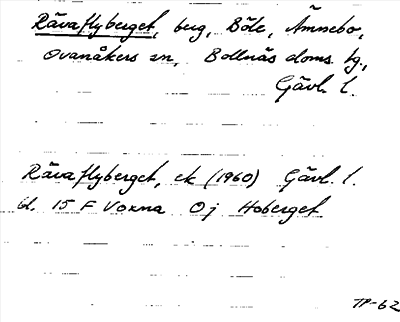 Rävaflyberget, berg, Böle, Ämnebo,
Ovanåkers sn, Bollnäs doms. tg.,
Gävl. l.
Rävaflyberget, ek (1960) Gävl. l.
bl. 15 F Voxna Oj Hoberget
TP-62